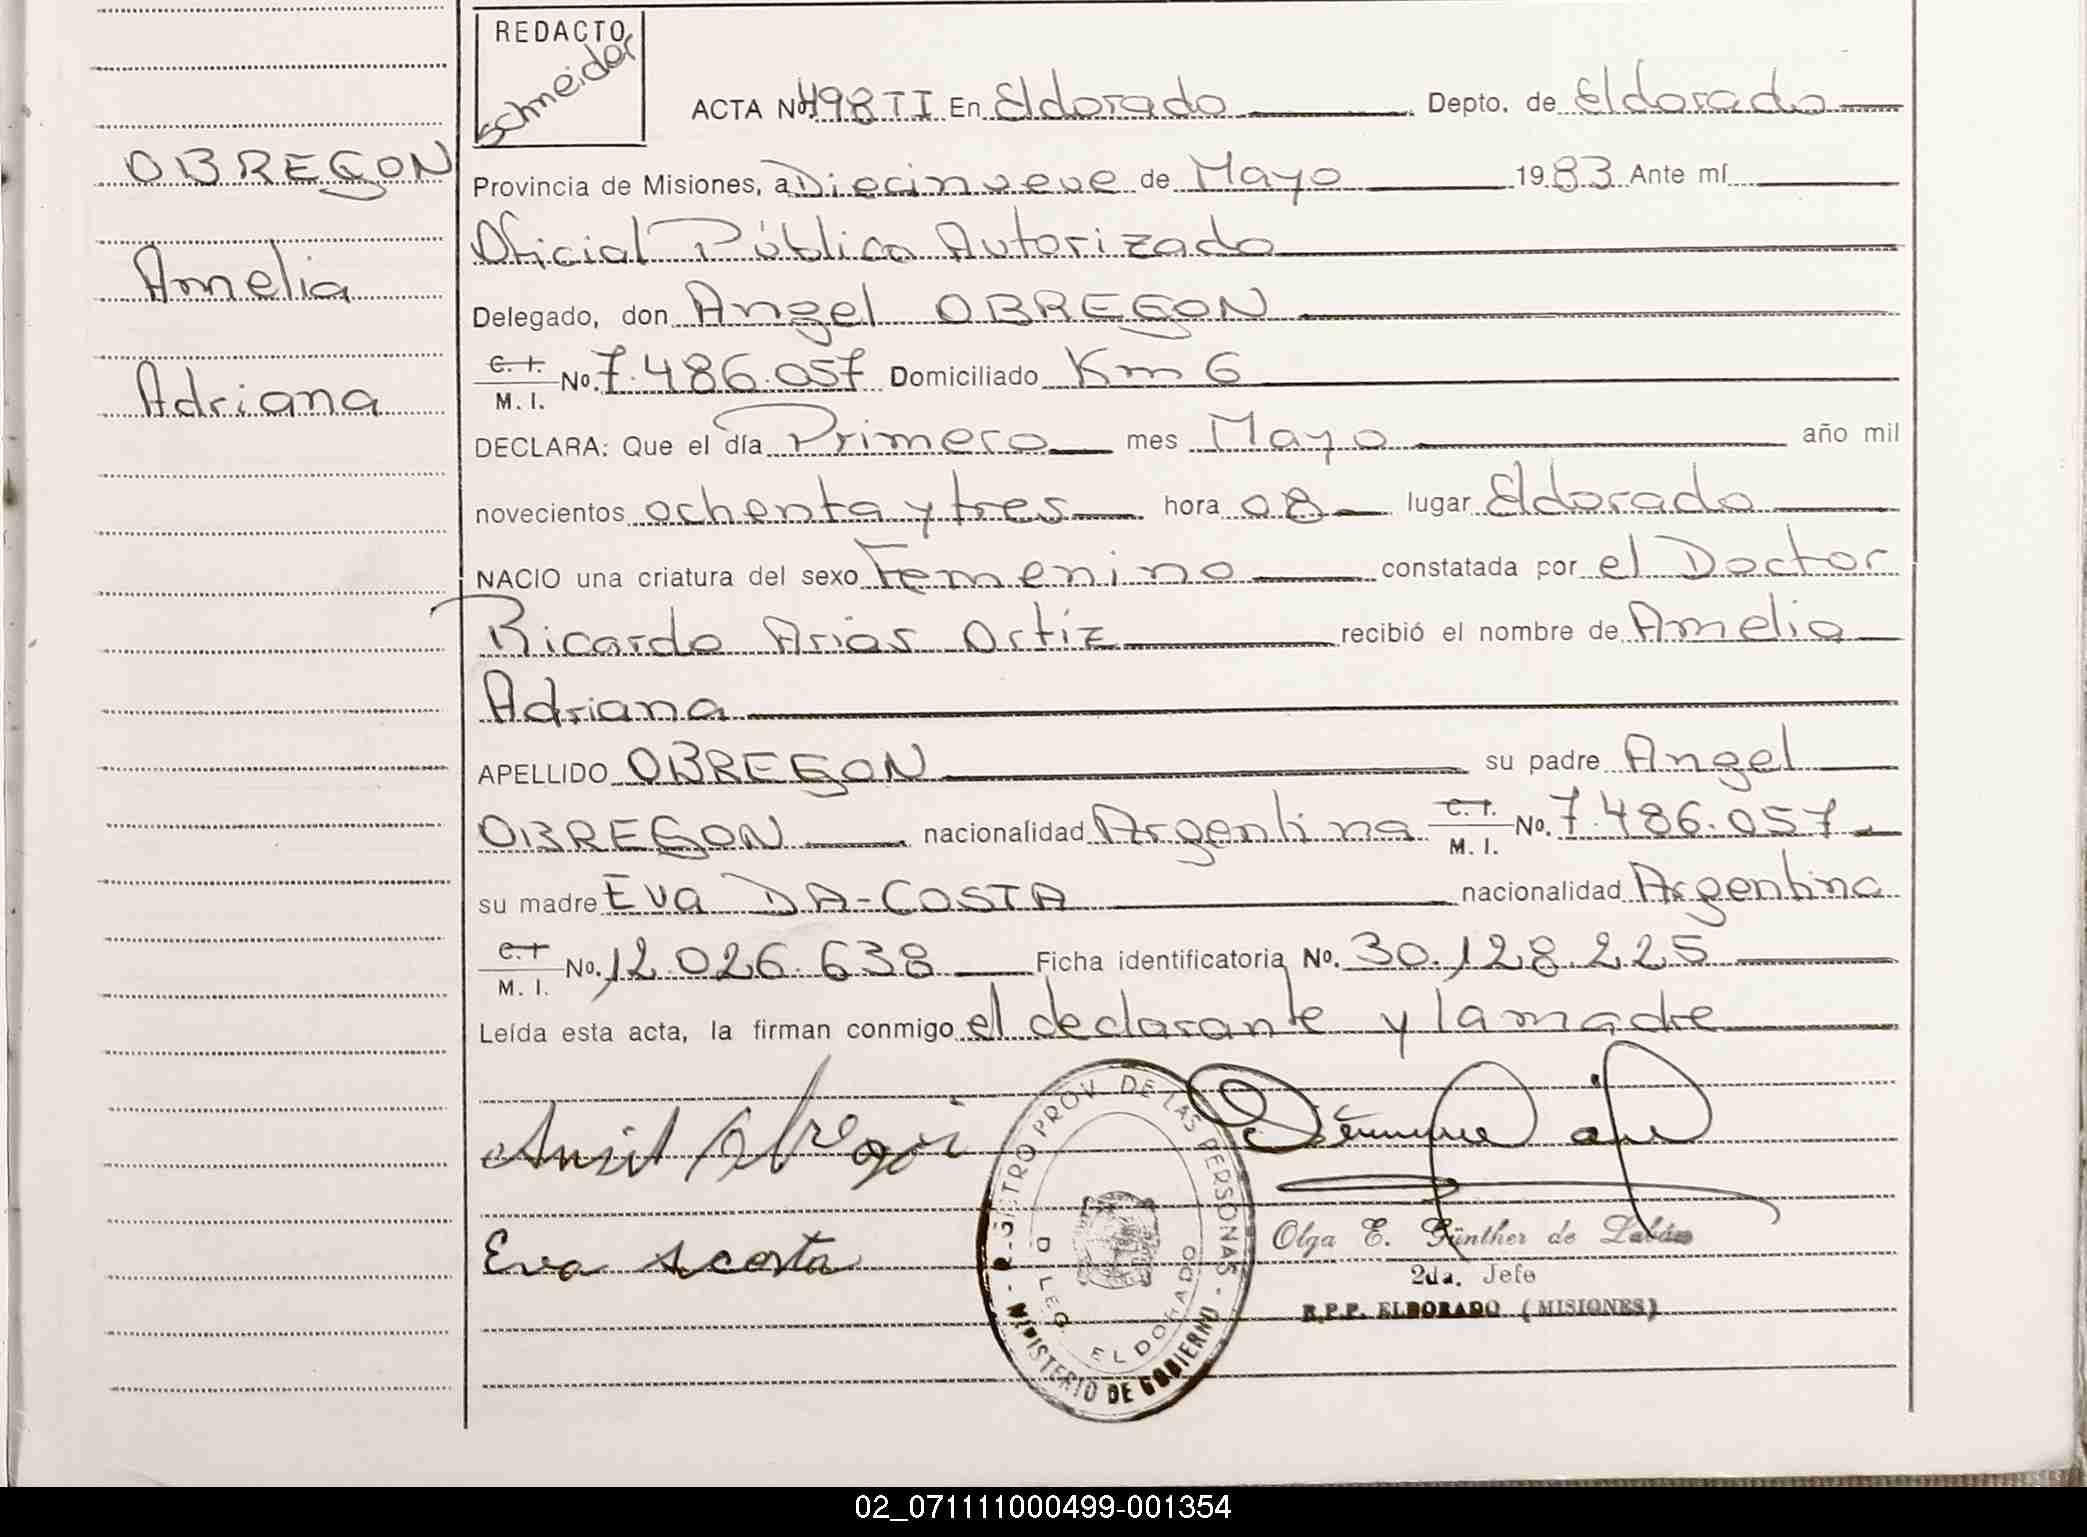 REDACTO
Schneider
OBREGON
Amelia
Adriana
ACTA No 498 TI En Eldorado Depto. de Eldorado
Provincia de Misiones, a Diecinueve de Mayo 1983 Ante mí
Oficial Público Autorizado
Delegado, don Angel OBREGON
C. I.
M. I. No. 7.486.057 Domiciliado Km 6
DECLARA: Que el día Primero mes Mayo año mil
novecientos ochenta y tres hora 08 lugar Eldorado
NACIO una criatura del sexo Femenino constatada por el Doctor
Ricardo Arias Ortiz recibió el nombre de Amelia
Adriana
APELLIDO OBREGON su padre Angel
OBREGON nacionalidad Argentina C. I. M. I. No. 7.486.057
su madre Eva DA-COSTA nacionalidad Argentina
C. I.
M. I. No. 12.026.638 Ficha identificatoria No. 30.128.225
Leída esta acta, la firman conmigo el declarante y la madre
Eva acosta
REGISTRO PROV. DE LAS PERSONAS - MINISTERIO DE GOBIERNO -
DELEG. ELDORADO
Olga E. Günther de
2da. Jefe
R.P.P. ELDORADO (MISIONES)
02_071111000499-001354